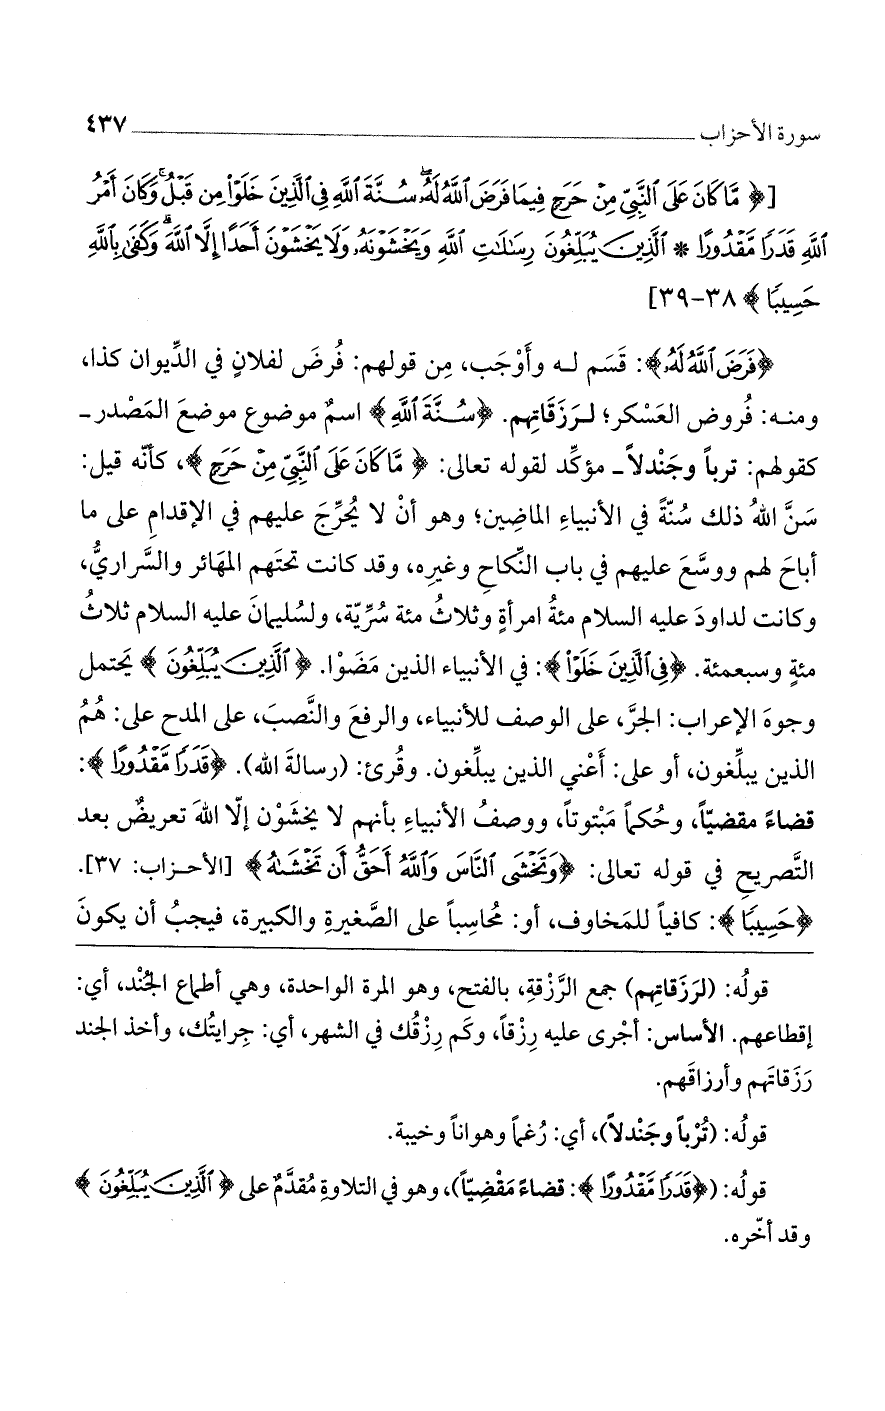 سورة الأحزاب ٤٣٧
[﴿ مَّا كَانَ عَلَى ٱلنَّبِيِّ مِنْ حَرَجٍ فِيمَا فَرَضَ ٱللَّهُ لَهُۥ سُنَّةَ ٱللَّهِ فِى ٱلَّذِينَ خَلَوْا۟ مِن قَبْلُ وَكَانَ أَمْرُ
ٱللَّهِ قَدَرًا مَّقْدُورًا * ٱلَّذِينَ يُبَلِّغُونَ رِسَٰلَٰتِ ٱللَّهِ وَيَخْشَوْنَهُۥ وَلَا يَخْشَوْنَ أَحَدًا إِلَّا ٱللَّهَ وَكَفَىٰ بِٱللَّهِ
حَسِيبًا ﴾ ٣٨-٣٩]
﴿فَرَضَ ٱللَّهُ لَهُۥ﴾: قَسَم لـه وأَوْجَب، مِن قولهم: فُرضَ لفلانٍ في الدِّيوان كذا،
ومنـه: فُروض العَسْكر؛ لـرَزَقَاتِهم. ﴿سُنَّةَ ٱللَّهِ﴾ اسمٌ موضوع موضعَ المَصْدر ـ
كقولهم: ترباً وجَنْدلاً ـ مؤكِّد لقوله تعالى: ﴿ مَّا كَانَ عَلَى ٱلنَّبِيِّ مِنْ حَرَجٍ ﴾، كأنّه قيل:
سَنَّ اللهُ ذلك سُنّةً في الأنبياءِ الماضِين؛ وهو أنْ لا يُحرِّجَ عليهم في الإقدامِ على ما
أباحَ لهم ووسَّعَ عليهم في باب النِّكاحِ وغيرِه، وقد كانت تحتَهم المهَائر والسَّراريُّ،
وكانت لداودَ عليه السلام مئةُ امرأةٍ وثلاثُ مئة سُرِّيّة، ولسُليمانَ عليه السلام ثلاثُ
مئةٍ وسبعمئة. ﴿فِى ٱلَّذِينَ خَلَوْا۟ ﴾: في الأنبياء الذين مَضَوْا. ﴿ ٱلَّذِينَ يُبَلِّغُونَ ﴾ يَحتمل
وجوهَ الإعراب: الجرَّ، على الوصف للأنبياء، والرفعَ والنَّصبَ، على المدح على: هُمُ
الذين يبلِّغون، أو على: أَعْني الذين يبلِّغون. وقُرئ: (رسالةَ الله). ﴿قَدَرًا مَّقْدُورًا ﴾:
قضاءً مقضيّاً، وحُكماً مَبْتوتاً، ووصفُ الأنبياءِ بأنهم لا يخشَوْن إلّا اللهَ تعريضٌ بعد
التَّصريحِ في قوله تعالى: ﴿وَتَخْشَى ٱلنَّاسَ وَٱللَّهُ أَحَقُّ أَن تَخْشَىٰهُ﴾ [الأحـزاب: ٣٧].
﴿حَسِيبًا ﴾: كافياً للمَخاوف، أو: مُحاسِباً على الصَّغيرةِ والكبيرة، فيجبُ أن يكونَ
قولُه: (لرَزَقاتِهم) جمع الرَّزْقةِ، بالفتح، وهو المرة الواحدة، وهي أطماع الجُنْد، أي:
إقطاعهم. الأساس: أجْرى عليه رِزْقاً، وكَم رِزْقُك في الشهر، أي: جِرايتُك، وأخذ الجند
رَزَقاتَهم وأرزاقَهم.
قولُه: (تُرْباً وجَنْدلاً)، أي: رُغماً وهواناً وخيبة.
قولُه: (﴿قَدَرًا مَّقْدُورًا ﴾: قضاءً مَقْضِيّاً)، وهو في التلاوةِ مُقدَّمٌ على ﴿ ٱلَّذِينَ يُبَلِّغُونَ ﴾
وقد أخّره.